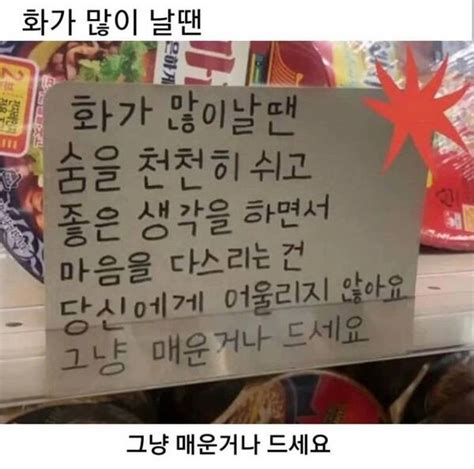 화가 많이 날땐
화가 많이날땐
숨을 천천히 쉬고
좋은 생각을 하면서
마음을 다스리는 건
당신에게 어울리지 않아요
그냥 매운거나 드세요
그냥 매운거나 드세요